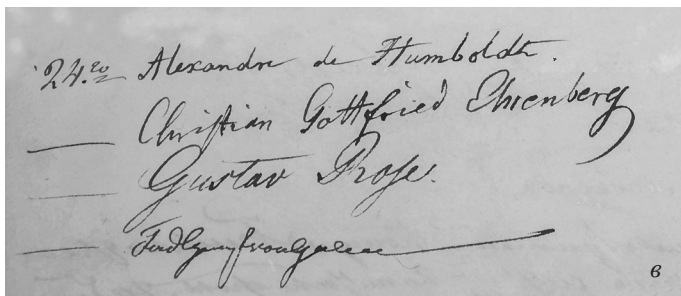 24.го Alexandre de Humboldt.
— Christian Gottfried Ehrenberg
— Gustav Rose.
—
в